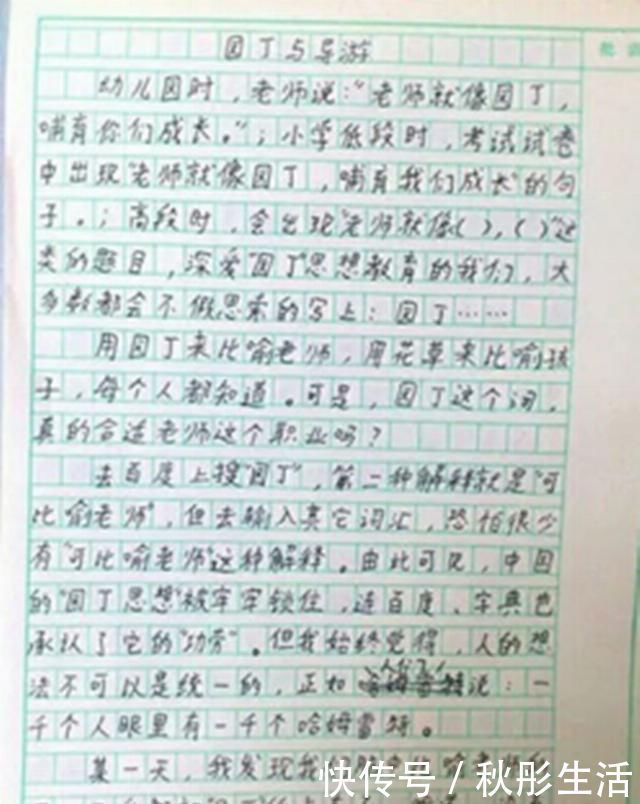 园丁与导游
幼儿园时，老师说："老师就像园丁，
哺育你们成长。"；小学低段时，考试试卷
中出现"老师就像园丁，哺育我们成长"的句
子。；高段时，会出现"老师就像( ),( )"这
类的题目，深爱"园丁"思想教育的我们，大
多数都会不假思索的写上：园丁……
用园丁来比喻老师，用花草来比喻孩
子，每个人都知道。可是，园丁这个词，
真的合适老师这个职业吗？
去百度上搜"园丁"，第二种解释就是"可
比喻老师"，但去输入其它词汇，恐怕很少
有"可比喻老师"这种解释。由此可见，中国
的"园丁思想"被牢牢锁住，连百度、字典也
承认了它的"功劳"。但我始终觉得，人的想
法不可以是统一的，正如人们说：一
千个人眼里有一千个哈姆雷特。
某一天，我发现我
快传号 / 秋彤生活